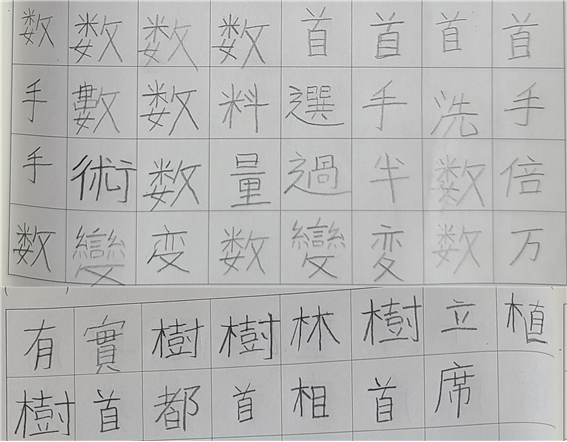 数数数数首首首首
手數数料選手洗手
手術数量過半数倍
数變変数變変数万
有實樹樹林樹立植
樹首都首相首席